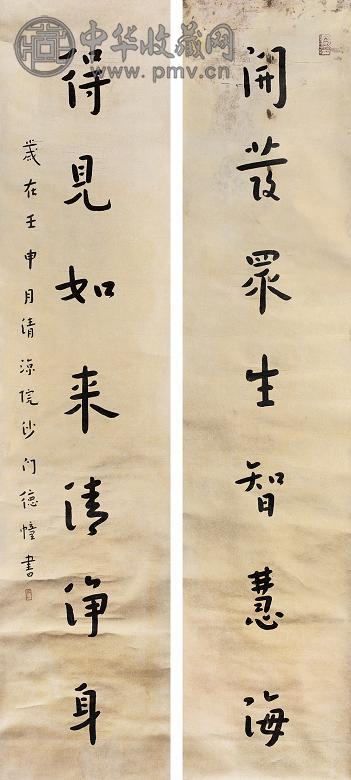 開發眾生智慧海
得見如来清淨身
歲在壬申月清涼院沙门德幢書
中华收藏网
www.pmv.cn